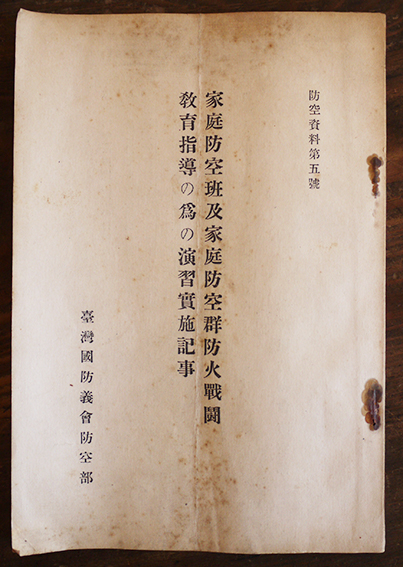 防空資料第五號
家庭防空班及家庭防空群防火戰鬪
敎育指導の爲の演習實施記事
臺灣國防義會防空部